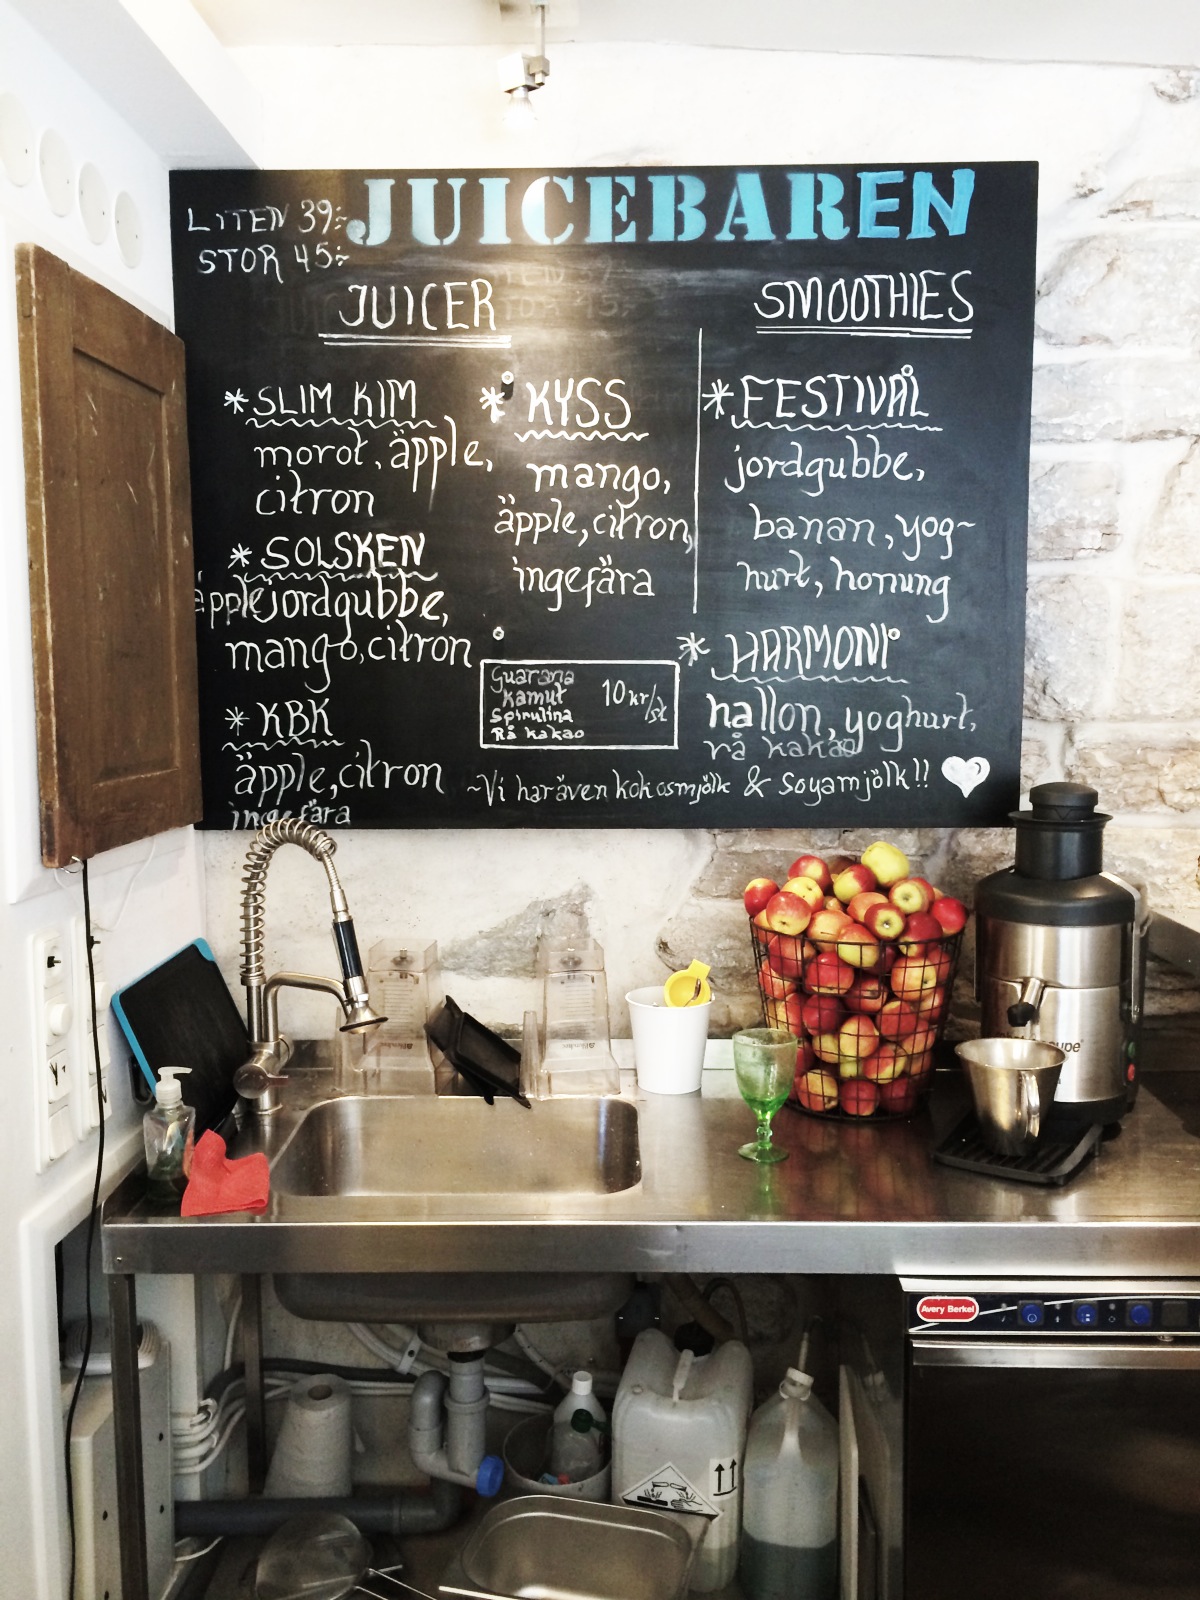 LITEN 39:-
STOR 45:-
JUICEBAREN
JUICER
* SLIM KIM
morot, äpple,
citron
* SOLSKEN
äpple jordgubbe,
mango, citron
* KBK
äpple, citron
ingefära
* KYSS
mango,
äpple, citron,
ingefära
Guarana
kamut
Spirulina
Rå kakao
10 kr/st
SMOOTHIES
* FESTIVAL
jordgubbe,
banan, yog~
hurt, honung
* HARMONI
hallon, yoghurt,
rå kakao
~Vi har även kokosmjölk & Soyamjölk!!
Avery Berkel